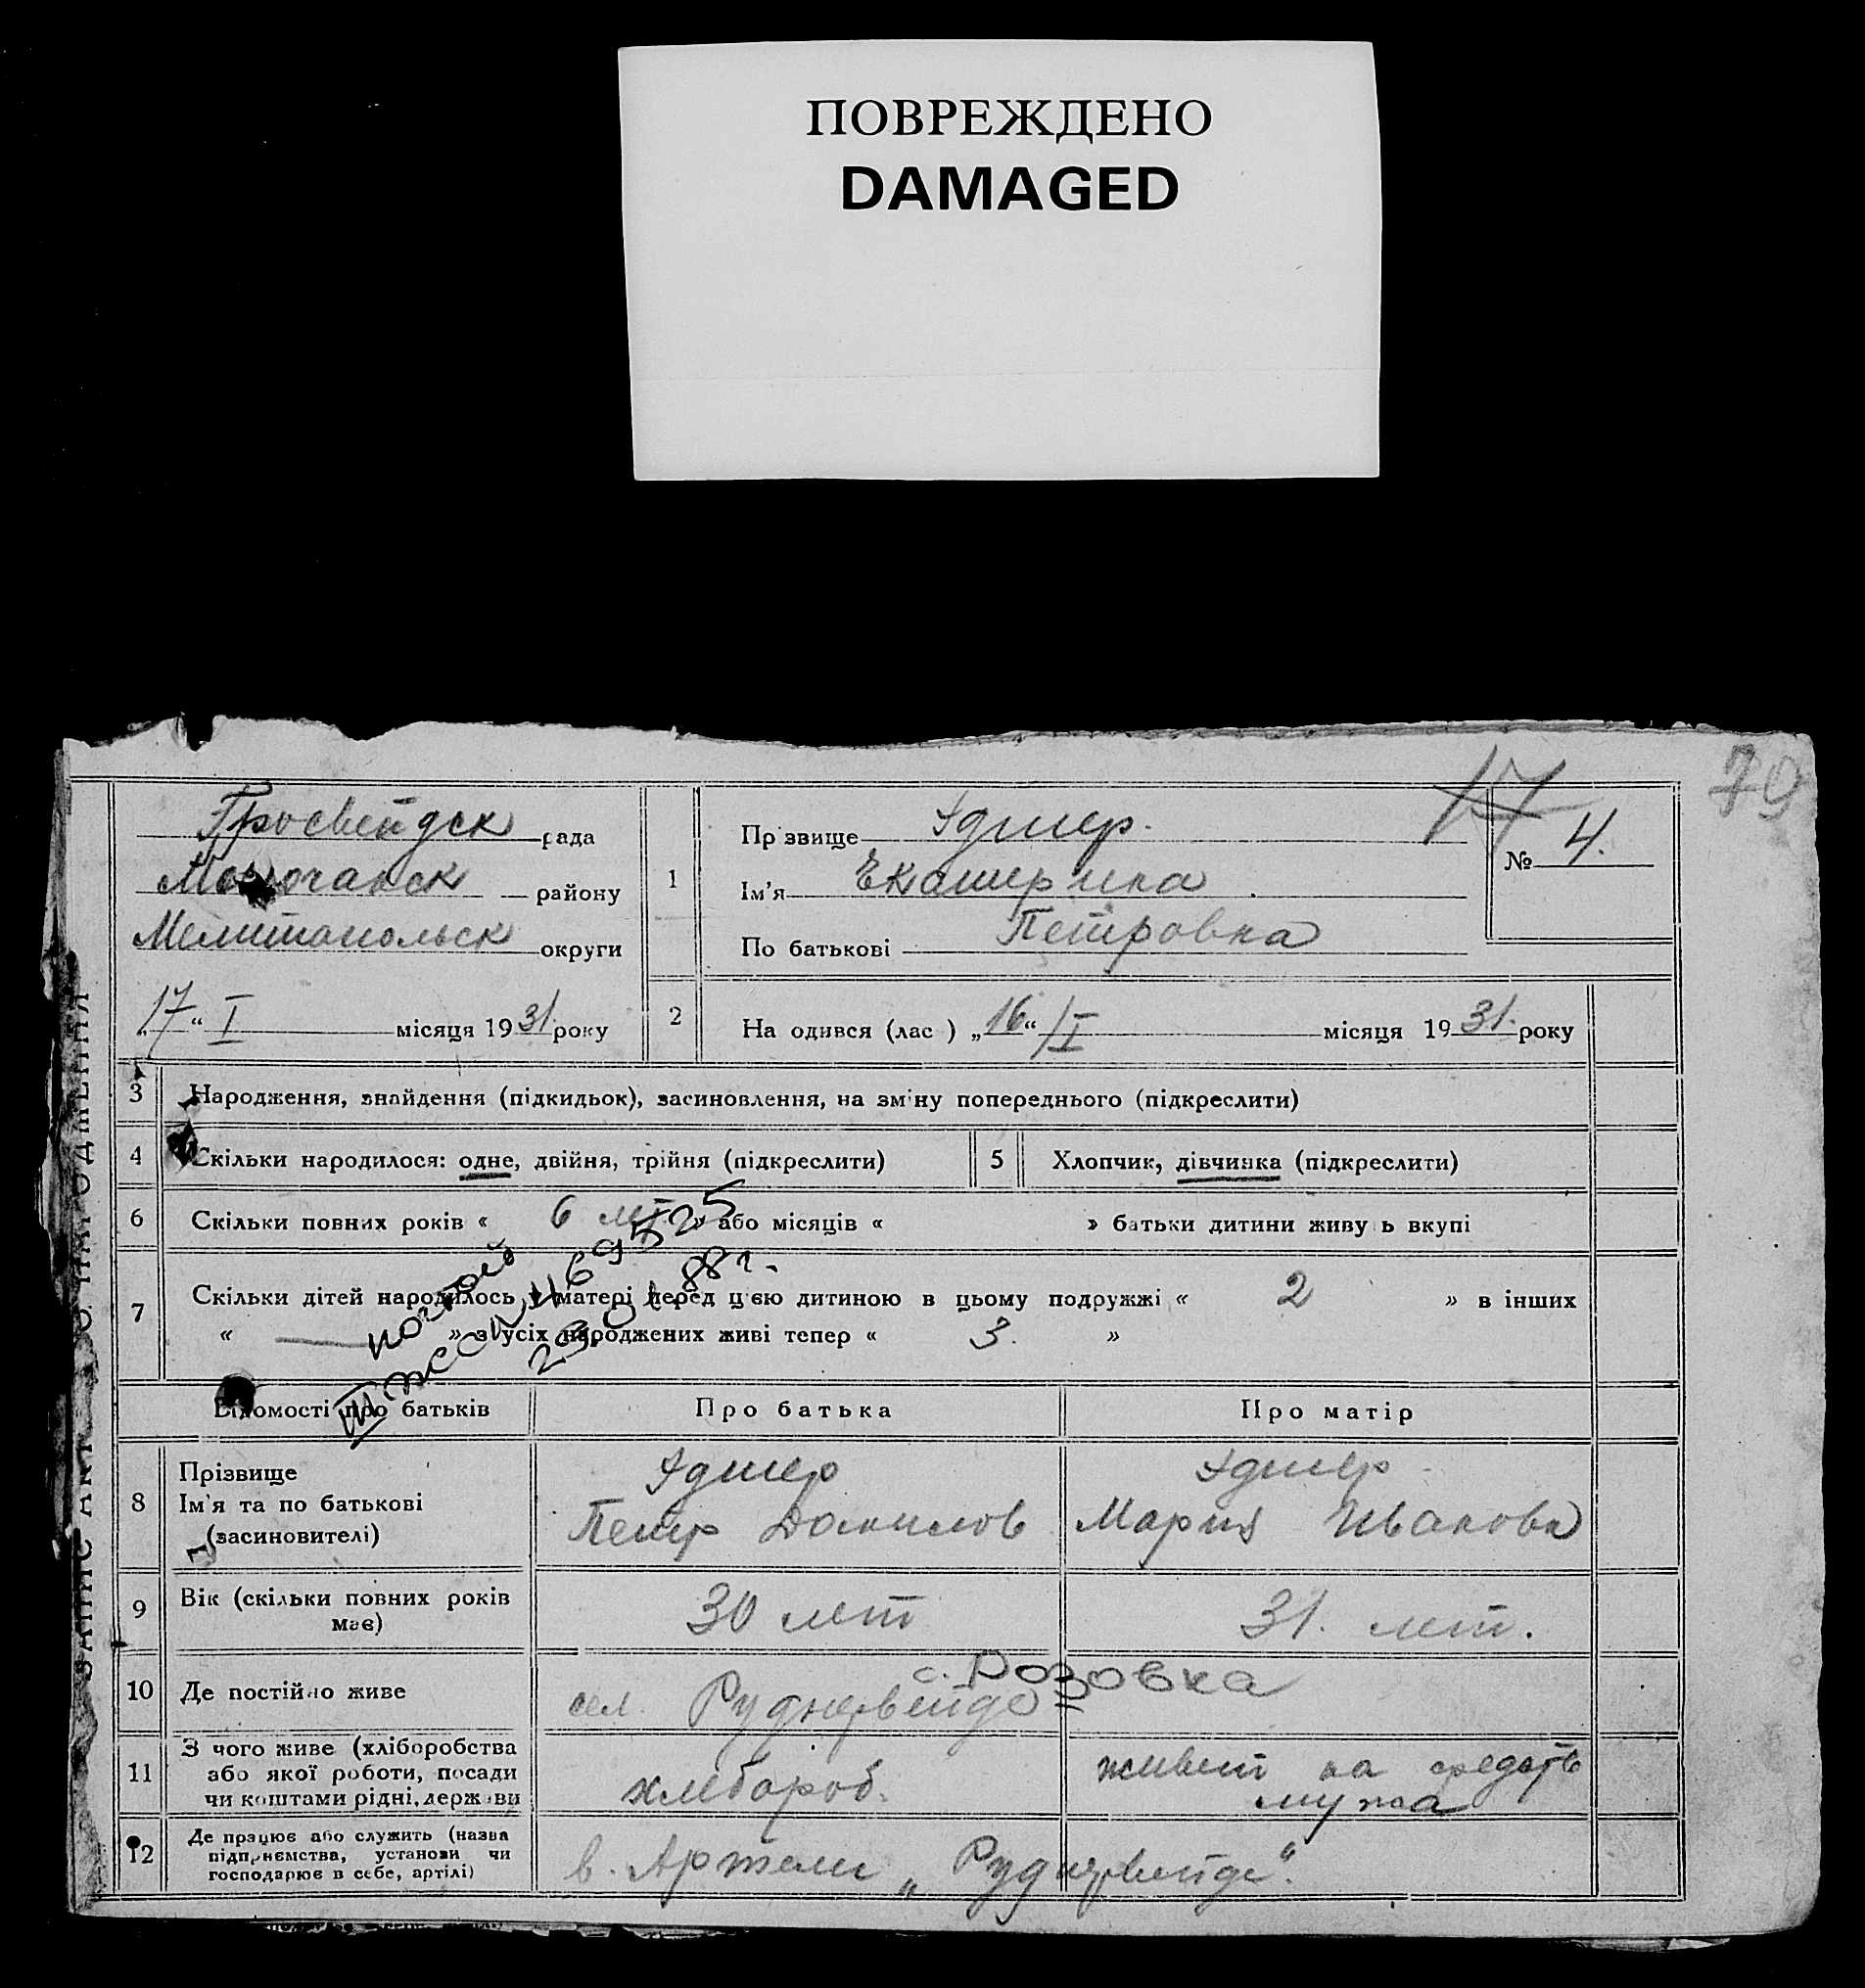 ПОВРЕЖДЕНО
DAMAGED
79
17
Гросвейдск рада
Молочанск району
Мелитопольск округи
„17“ I місяця 1931 року
1
Прізвище
Ім’я Екатерина
По батькові Петровна
№ 4.
2 На одився (лас ) „16“ I місяця 1931. року
ЗАПИС АКТ ПРО НАРОДЖЕННЯ
3 Народження, знайдення (підкидьок), засиновлення, на зміну попереднього (підкреслити)
4 Скільки народилося: одне, двійня, трійня (підкреслити) 5 Хлопчик, дівчинка (підкреслити)
6 Скільки повних років « 6 лет » або місяців « » батьки дитини живуть вкупі
7 Скільки дітей народилось у матері перед цією дитиною в цьому подружжі « 2 » в інших
« — » з усіх народжених живі тепер « 3. »
повтор
III ЖС № 469525
29.01.88 г.
Відомості про батьків Про батька Про матір
8 Прізвище
Ім’я та по батькові Петр Данилов Мария Иванова
(засиновителі)
9 Вік (скільки повних років має) 30 лет 31. лет.
с. Розовка
10 Де постійно живе сел. Руднервейде
11 З чого живе (хліборобства або якої роботи, посади чи коштами рідні, держави хлебороб. живет на средств мужа
12 Де працює або служить (назва підприємства, установи чи господарює в себе, артілі) в. Артели „Руднервейде“.